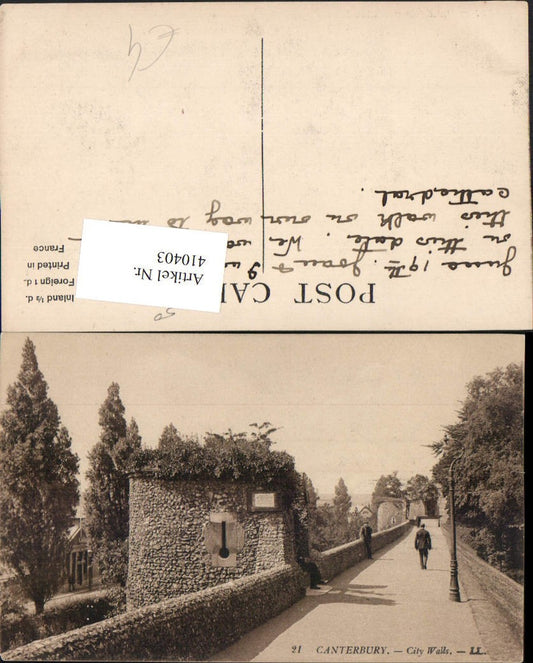 POST CAR
Inland ½ d.
Foreign 1 d.
Printed in
France
Artikel Nr.
410403
June 19th. Joan & I w
on this date. We w
this walk on our way to
cathedral.
50
21 CANTERBURY. — City Walls. — LL.